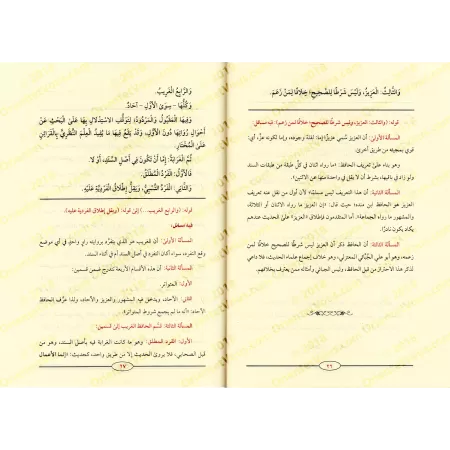 وَالثَّالِثُ: العَزِيزُ، وَلَيْسَ شَرْطًا لِلصَّحِيحِ؛ خِلَافًا لِمَنْ زَعَمَ.
قوله: (والثالث: العزيز، وليس شرطًا للصحيح؛ خلافًا لمن زعم) فيه مسائل:
المسألة الأولى: أن العزيز سُمي عزيزًا إما: لقلة وجوده، وإما لكونه عزَّ، أي:
قوي بمجيئه من طريق أخرى.
وهو بناء على تعريف الحافظ: «ما رواه اثنان في كل طبقة من طبقات السند
ولو زادت باقيها، بشرط أن لا يقل في واحدة منها عن الاثنين».
المسألة الثانية: أن هذا التعريف ليس مسلمًا؛ لأن أول من عُرف عنه تعريف
العزيز هو الحافظ ابن منده؛ حيث قال: «إن العزيز ما رواه الاثنان أو الثلاثة،
والمشهور ما رواه الجماعة». أما المتقدمون فإطلاق «العزيز» على الحديث عندهم
يكاد يكون نادرًا.
المسألة الثالثة: الحافظ ذكر أن العزيز ليس شرطًا للصحيح خلافًا لمن
زعمه، وهو أبو علي الجُبَّائي المعتزلي، وهو خلاف إجماع علماء الحديث، فلا داعي
لذكر هذا الاحتراز من قبل الحافظ، وليس الجبائي وأمثاله ممن يعترف بخلافهم.
٢٦
وَالرَّابِعُ: الغَرِيبُ.
وَكُلُّهَا - سِوَى الأَوَّلِ - آحَادٌ.
وَفِيهَا المَقْبُولُ وَالمَرْدُودُ؛ لِتَوَقُّفِ الاسْتِدْلَالِ بِهَا عَلَى البَحْثِ عَنْ
أَحْوَالِ رُوَاتِهَا دُونَ الأَوَّلِ، وَقَدْ يَقَعُ فِيهَا مَا يُفِيدُ العِلْمَ النَّظَرِيَّ بِالقَرَائِنِ
عَلَى المُخْتَارِ.
ثُمَّ الغَرَابَةُ: إِمَّا أَنْ تَكُونَ فِي أَصْلِ السَّنَدِ، أَوْ لَا.
فَالأَوَّلُ: الفَرْدُ المُطْلَقُ.
وَالثَّانِي: الفَرْدُ النِّسْبِيُّ، وَيَقِلُّ إِطْلَاقُ الفَرْدِيَّةِ عَلَيْهِ.
قوله: (والرابع الغريب. ...) إلى قوله: (ويقل إطلاق الفردية عليه).
فيه مسائل:
المسألة الأولى: أن الغريب هو الذي يتفرّد بروايته راوٍ واحد في أي موضع
وقع التفرد به، سواء أكان التفرد في أصل السند أم في أثناء السند.
المسألة الثانية: أن هذه الأقسام الأربعة تندرج ضمن قسمين:
الأول: المتواتر.
الثاني: الآحاد، ويدخل فيه المشهور والعزيز والآحاد، ولذا عرَّف الحافظ
الآحاد: «أنه ما لم يجمع شروط المتواتر».
المسألة الثالثة: قسّم الحافظ الغريب إلى قسمين:
الأول: الفرد المطلق: وهو ما كانت الغرابة فيه بأصل السند، وهو من
قبل الصحابي، فلا يروى الحديث إلا من طريق واحد، كحديث: «إنما الأعمال
٢٧